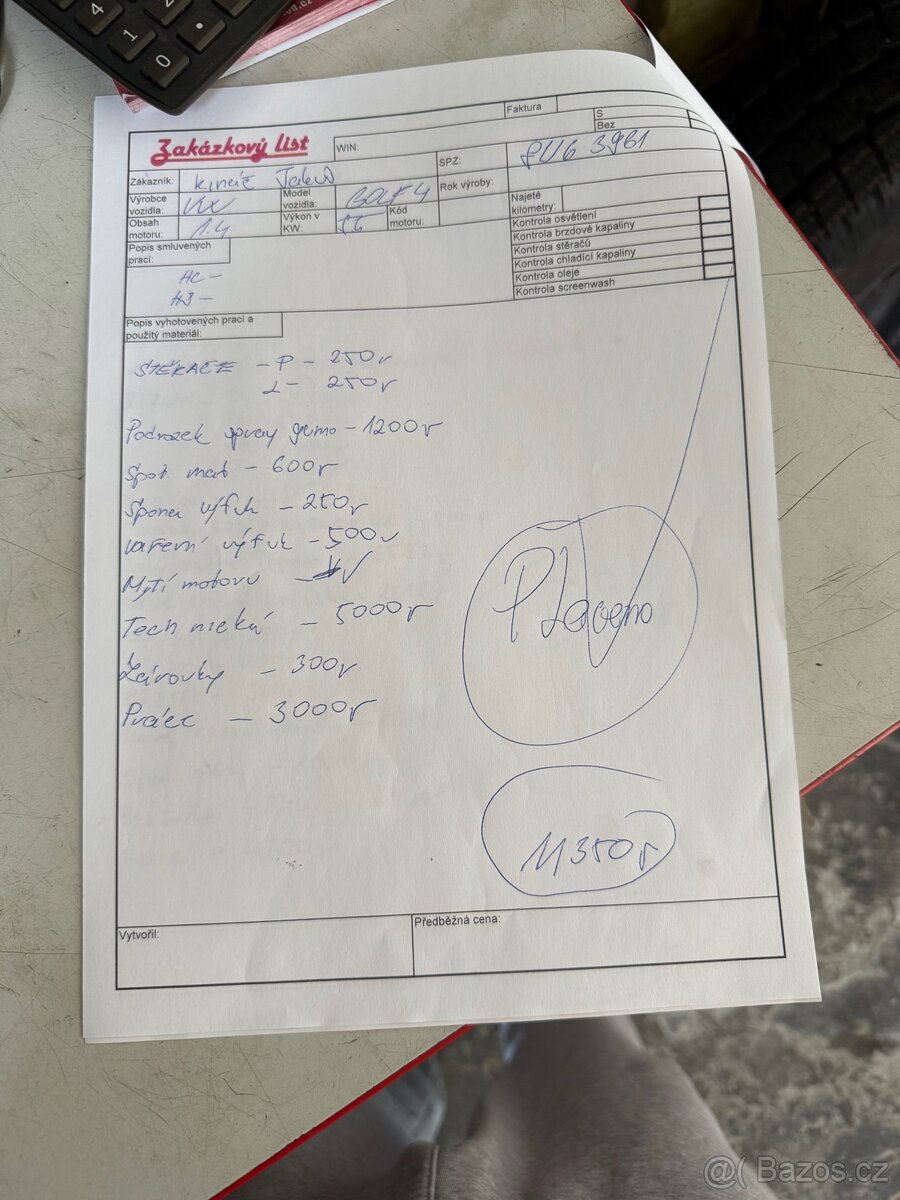 4
2
1
0
•
Faktura
S
Bez
Zakázkový list
WIN:
SPZ:
5U6 3961
Zákazník:
Výrobce vozidla:
VW
Model vozidla:
GOLF 4
Rok výroby:
Obsah motoru:
1.4
Výkon v KW:
55
Kód motoru:
Najeté kilometry:
Kontrola osvětlení
Kontrola brzdové kapaliny
Kontrola stěračů
Kontrola chladící kapaliny
Kontrola oleje
Kontrola screenwash
Popis smluvených prací:
HC -
H3 -
Popis vyhotovených prací a použitý materiál:
STĚRAČE - P - 250,-
L - 250,-
Podvozek spray gumo - 1200,-
Spot. mat - 600,-
Spona výfuk - 250,-
vaření výfuk - 500,-
Mytí motoru - ✓
Tech nická - 5000,-
Žárovky - 300,-
Práce - 3000,-
Placeno
11350,-
Vytvořil:
Předběžná cena:
@( Bazos.cz